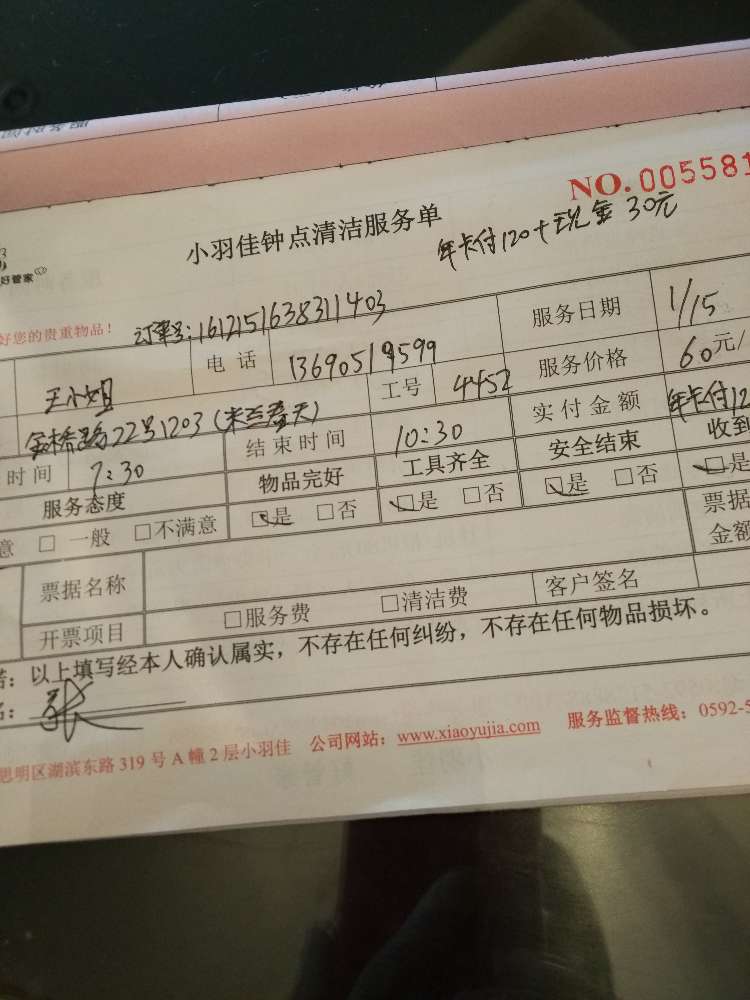 NO. 005581
小羽佳钟点清洁服务单
年卡付120+现金 30元
好管家
好您的贵重物品！ 订单号:1612151638311403
王小姐 电 话 13690519599 服务日期 1/15
金桥路22号1203 工号 4452 服务价格 60元/
时间 7:30 结束时间 10:30 实付金额 年卡付12
服务态度 物品完好 工具齐全 安全结束 收到
意 □ 一般 □不满意 ☑是 □否 ☑是 □否 ☑是 □否 ☑是
票据名称 票据
金额
开票项目 □服务费 □清洁费 客户签名
诺：以上填写经本人确认属实，不存在任何纠纷，不存在任何物品损坏。
名：
思明区湖滨东路 319 号 A 幢 2 层小羽佳 公司网站：www.xiaoyujia.com 服务监督热线：0592-5